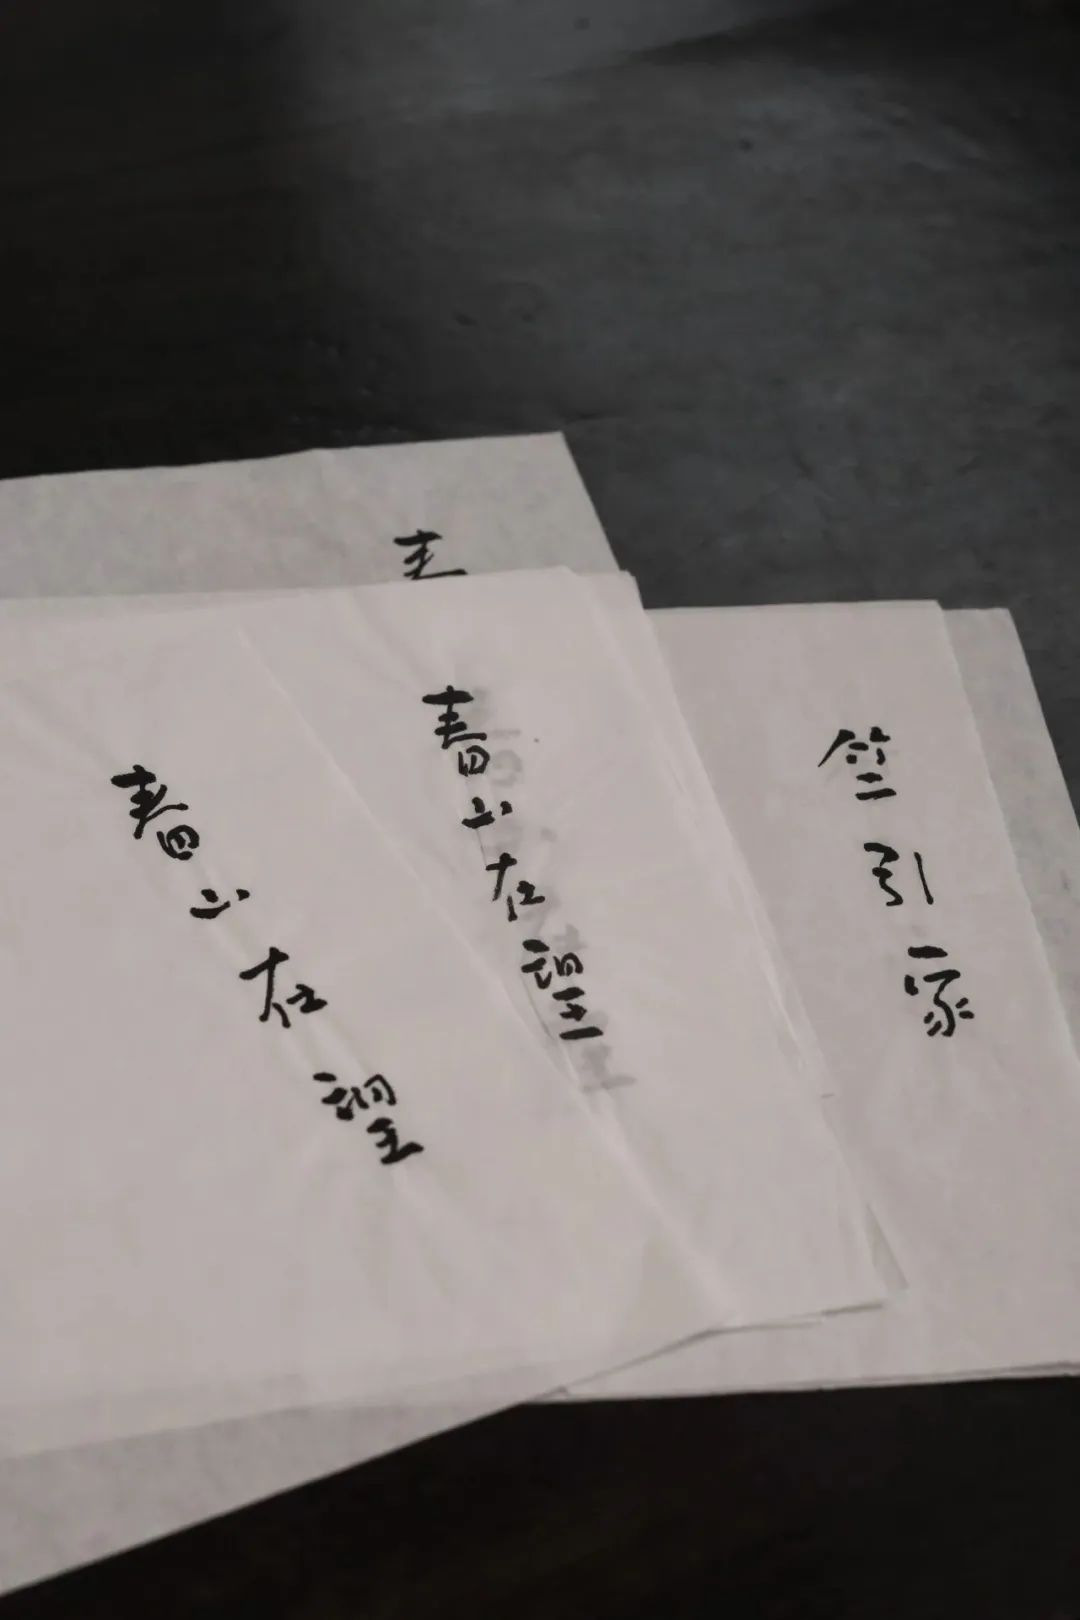 春山在望
春山在望
竺引家